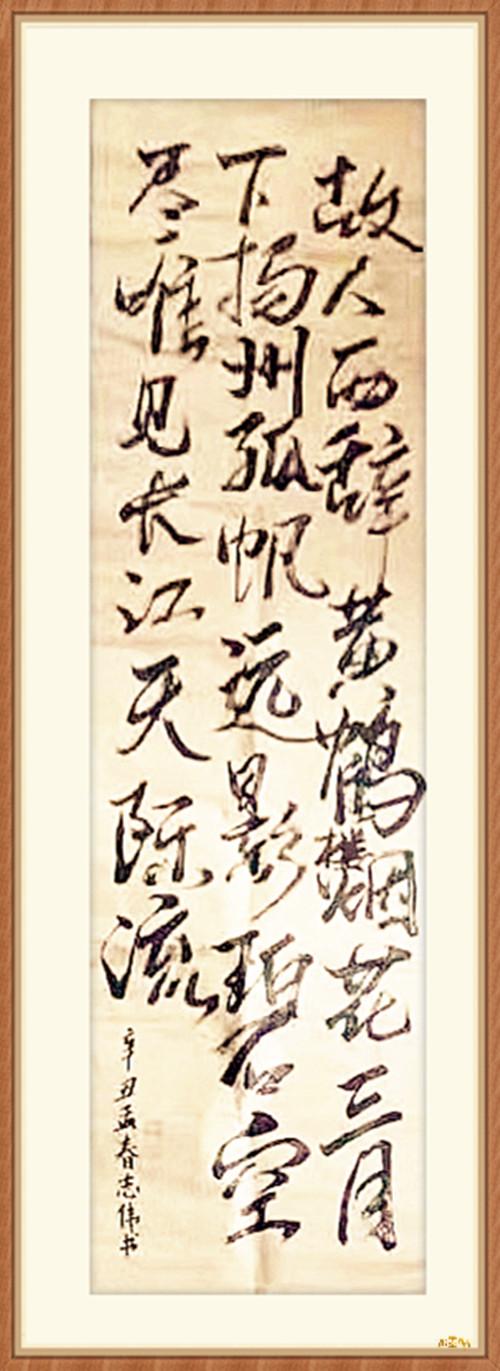 故人西辞黄鹤楼烟花三月
下扬州孤帆远影碧空
尽唯见长江天际流
辛丑孟春志伟书